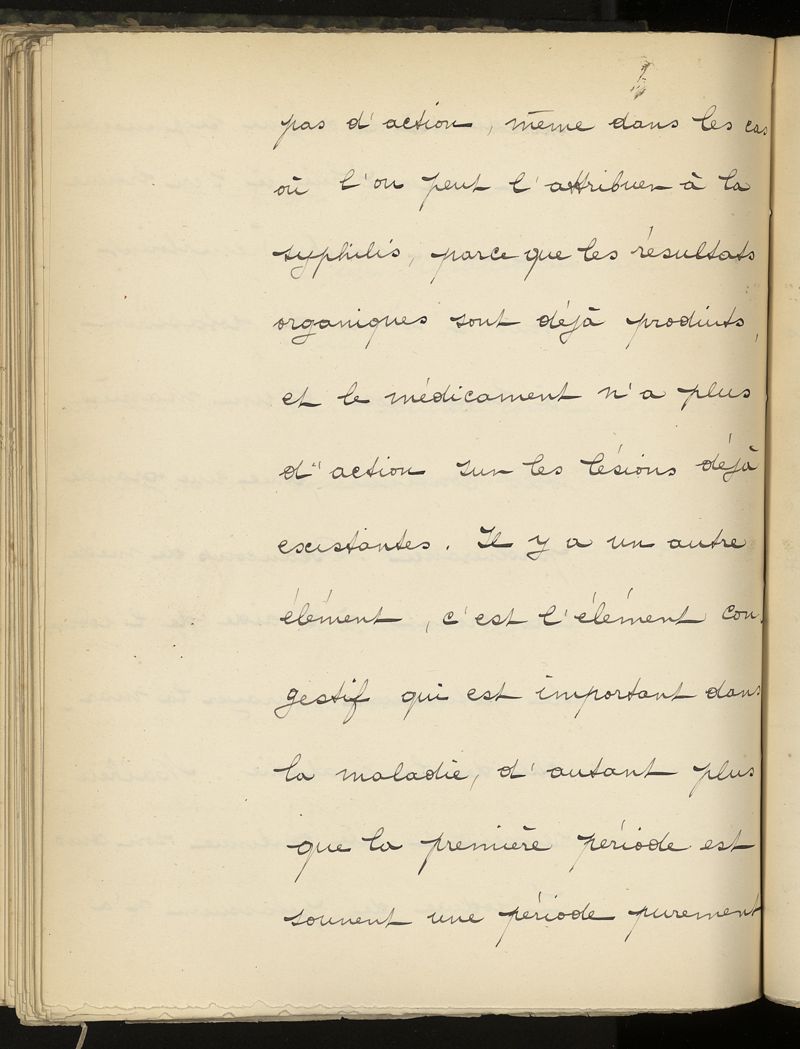 pas d'action, même dans les cas
où l'on peut l'attribuer à la
syphilis, parce que les résultats
organiques sont déjà produits,
et le médicament n'a plus
d'action sur les lésions déjà
existantes. Il y a un autre
élément, c'est l'élément con-
gestif qui est important dans
la maladie, d'autant plus
que la première période est
souvent une période purement